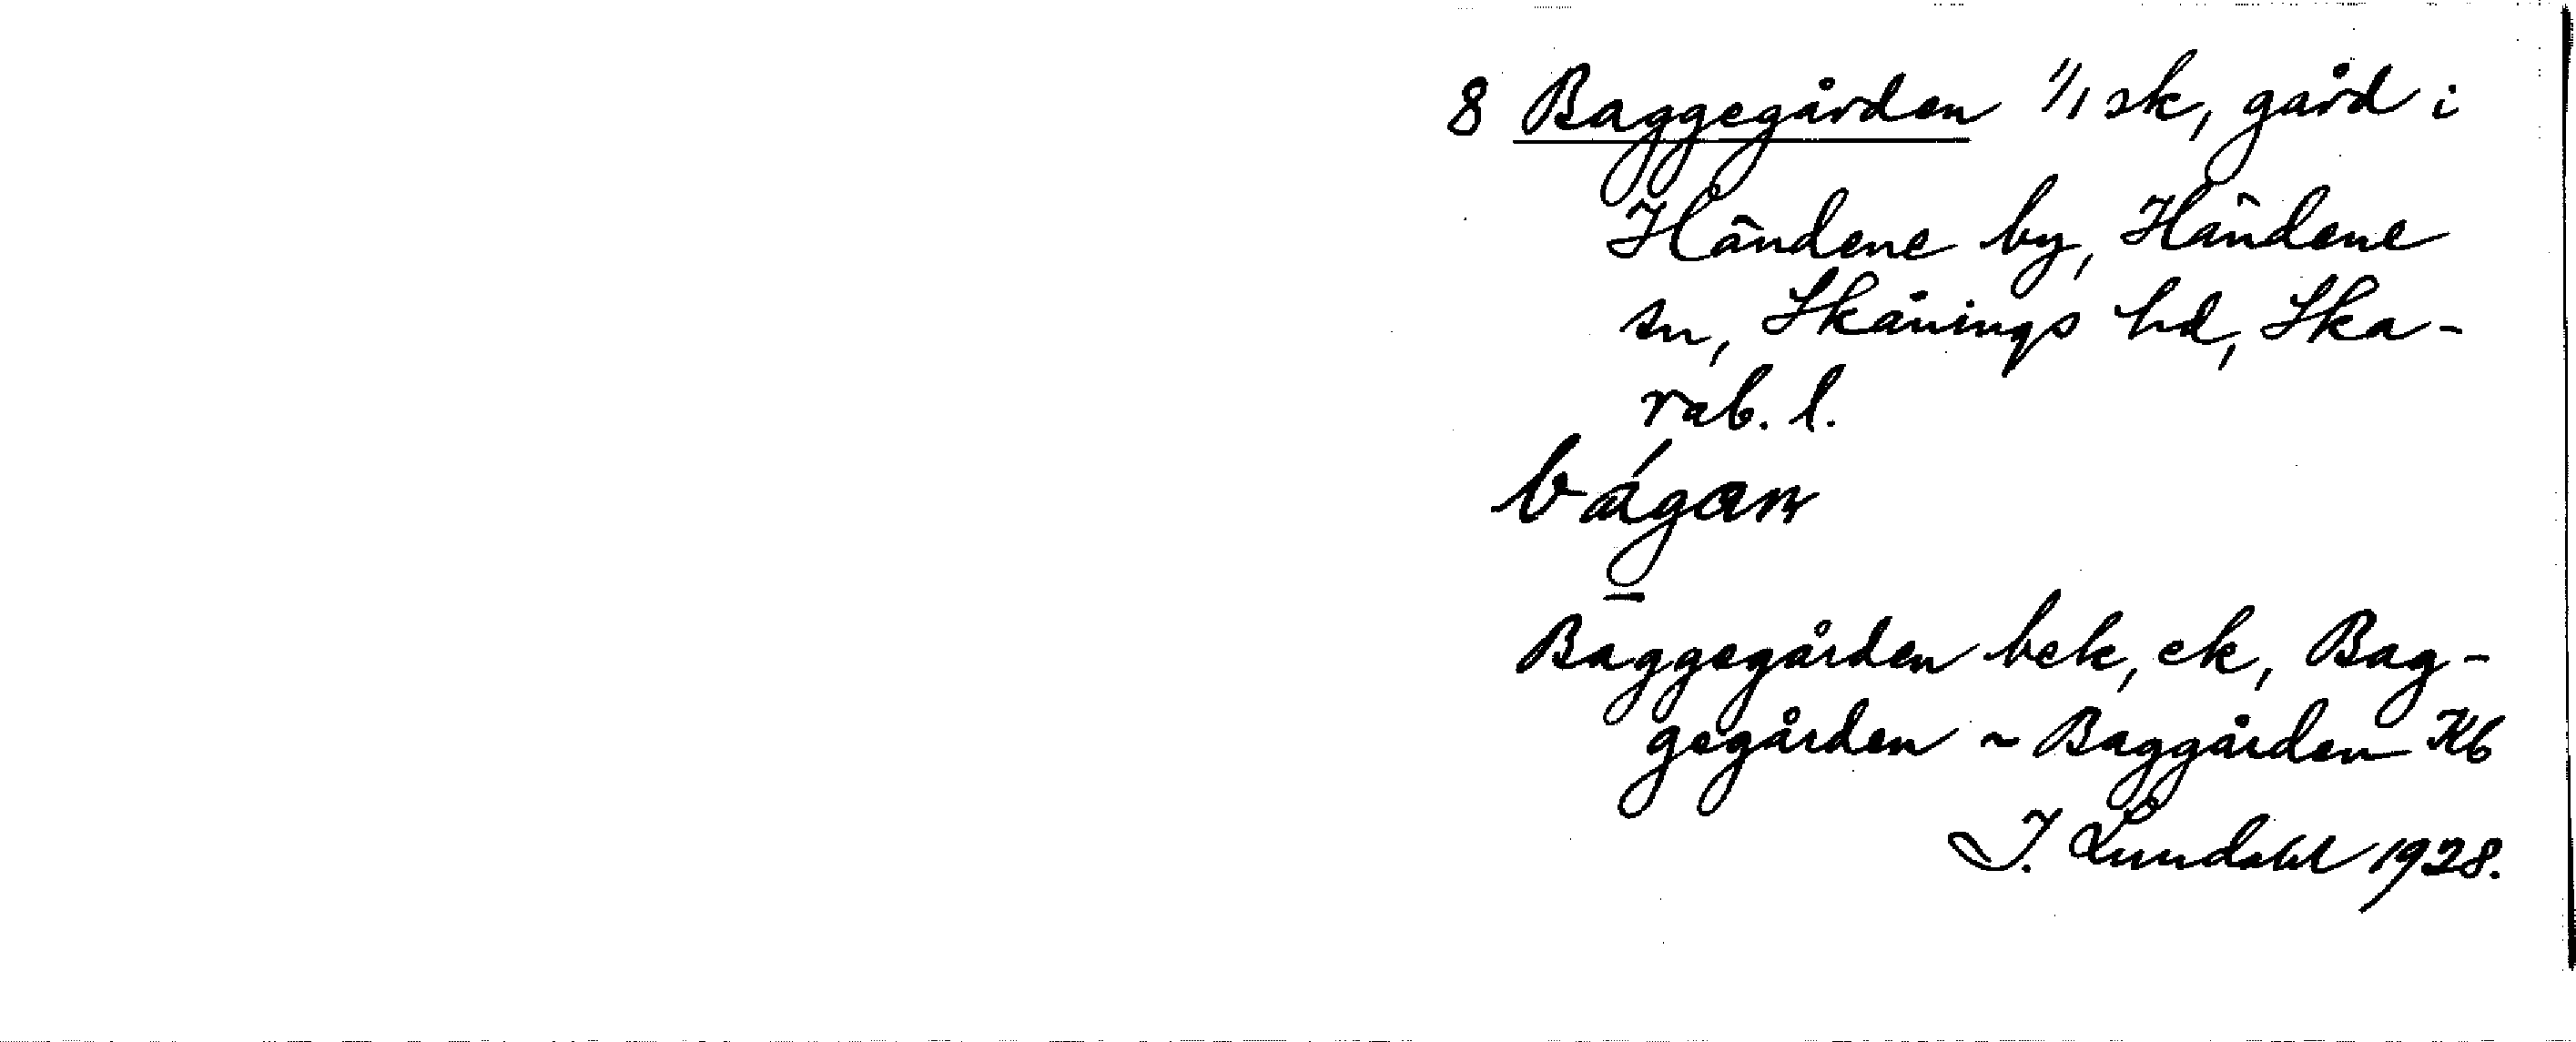 8 Baggegården 1/1 sk, gård i
Händene by, Händene
sn, Skånings hd, Ska-
rab. l.
bágan
Baggegården bek, ek, Bag-
gegården ~ Baggården Kb
I. Lundahl 1928.